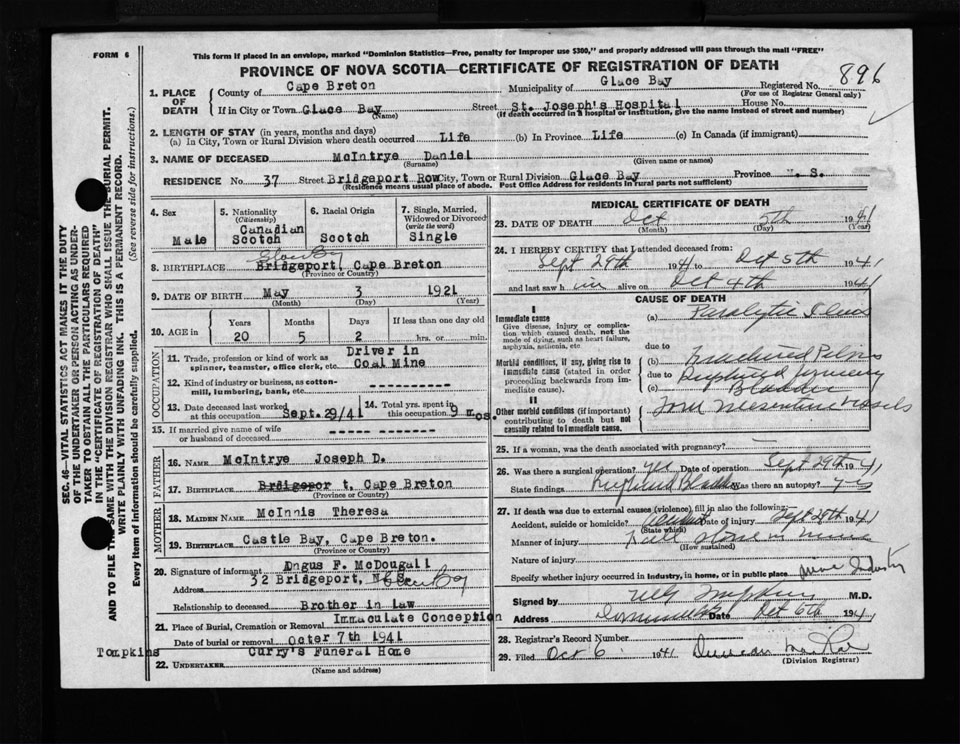 FORM 6
This form if placed in an envelope, marked "Dominion Statistics—Free, penalty for improper use $300," and properly addressed will pass through the mail "FREE"
PROVINCE OF NOVA SCOTIA—CERTIFICATE OF REGISTRATION OF DEATH
896
SEC. 46—VITAL STATISTICS ACT MAKES IT THE DUTY
OF THE UNDERTAKER OR PERSON ACTING AS UNDER-
TAKER TO OBTAIN ALL THE PARTICULARS REQUIRED
IN THE "CERTIFICATE OF REGISTRATION OF DEATH"
AND TO FILE THE SAME WITH THE DIVISION REGISTRAR WHO SHALL ISSUE THE BURIAL PERMIT.
WRITE PLAINLY WITH UNFADING INK. THIS IS A PERMANENT RECORD.
Every item of information should be carefully supplied. (See reverse side for instructions.)
1. PLACE OF DEATH County of Cape Breton Municipality of Glace Bay Registered No.
(For use of Registrar General only)
If in City or Town Glace Bay Street St. Joseph's Hospital House No.
(Name) (If death occurred in a hospital or institution, give the name instead of street and number)
2. LENGTH OF STAY (in years, months and days)
(a) In City, Town or Rural Division where death occurred Life (b) In Province Life (c) In Canada (if immigrant)
3. NAME OF DECEASED McIntrye Daniel
(Surname) (Given name or names)
RESIDENCE No. 37 Street Bridgeport Row City, Town or Rural Division Glace Bay Province N. S.
(Residence means usual place of abode. Post Office Address for residents in rural parts not sufficient)
4. Sex 5. Nationality (Citizenship) 6. Racial Origin 7. Single, Married, Widowed or Divorced (write the word)
Male Canadian Scotch Scotch Single
8. BIRTHPLACE Bridgeport, Cape Breton
(Province or Country)
9. DATE OF BIRTH May 3 1921
(Month) (Day) (Year)
10. AGE in Years Months Days If less than one day old
20 5 2 hrs. or min.
OCCUPATION
11. Trade, profession or kind of work as spinner, teamster, office clerk, etc. Driver in Coal Mine
12. Kind of industry or business, as cotton-mill, lumbering, bank, etc. ----------
13. Date deceased last worked at this occupation Sept.29/41 14. Total yrs. spent in this occupation 9 mos.
15. If married give name of wife or husband of deceased ----- -------
FATHER
16. NAME McIntrye Joseph D.
17. BIRTHPLACE Bridgepor t, Cape Breton
(Province or Country)
MOTHER
18. MAIDEN NAME McInnis Theresa
19. BIRTHPLACE Castle Bay, Cape Breton.
(Province or Country)
20. Signature of informant Angus F. McDougall
Address 32 Bridgeport, N.S.
Relationship to deceased Brother in law
21. Place of Burial, Cremation or Removal Immaculate Conception
Date of burial or removal Octer 7th 1941
Tompkins Curry's Funeral Home
22. UNDERTAKER
(Name and address)
MEDICAL CERTIFICATE OF DEATH
23. DATE OF DEATH Oct 5th 1941
(Month) (Day) (Year)
24. I HEREBY CERTIFY that I attended deceased from:
Sept 29th 1941 to Oct 5th 1941
and last saw him alive on Oct 4th 1941
CAUSE OF DEATH
I
Immediate cause
Give disease, injury or complication which caused death, not the mode of dying, such as heart failure, asphyxia, asthenia, etc.
(a) Paralytic Ileus
due to
Morbid conditions, if any, giving rise to immediate cause (stated in order proceeding backwards from immediate cause).
(b) Fractured Pelvis
due to
(c) Ruptured Urinary Bladder
II
Other morbid conditions (if important) contributing to death but not causally related to immediate cause.
Torn Mesenteric Vessels
25. If a woman, was the death associated with pregnancy? —
26. Was there a surgical operation? yes Date of operation Sept 29th 1941
State findings Ruptured Bladder Was there an autopsy? yes
27. If death was due to external causes (violence), fill in also the following:
Accident, suicide or homicide? Accident Date of injury Sept 29th 1941
(State which)
Manner of injury Fall stone in mine
(How sustained)
Nature of injury
Specify whether injury occurred in industry, in home, or in public place mine Industry
Signed by M.D.
Address Dominion Date Oct 6th 1941
28. Registrar's Record Number
29. Filed Oct 6 1941 Duncan
(Division Registrar)